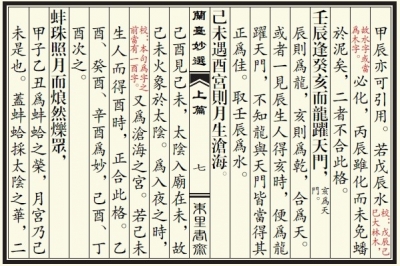 甲辰亦可引用。若戊辰水
故水字或當為木字。
必化，丙辰雖化而未免蟠
校：戊辰己巳大林木，
於泥矣，二者不合此格。
壬辰逢癸亥而龍躍天門，
亥為天門。
辰則為龍，亥則為乾，合為天。
或者一見辰生人得亥時，便為龍
躍天門，不知龍與天門皆當得其
正為佳。取壬辰為水。
己未遇酉宮則月生滄海。
蘭臺妙選
上篇
七
東里書齋
己酉見己未，太陰入廟在未，故
己未火象於太陰。為入夜之時，
校：本句為字之前當有一酉字。
又為滄海之宮。若己未
生人而得酉時，正合此格。乙
酉、癸酉、辛酉為妙，己酉、丁
酉次之。
蚌珠照月而烺然爍眾，
甲子乙丑為蚌蛤之榮，月宮乃己
未是也。蓋蚌蛤採太陰之華，二